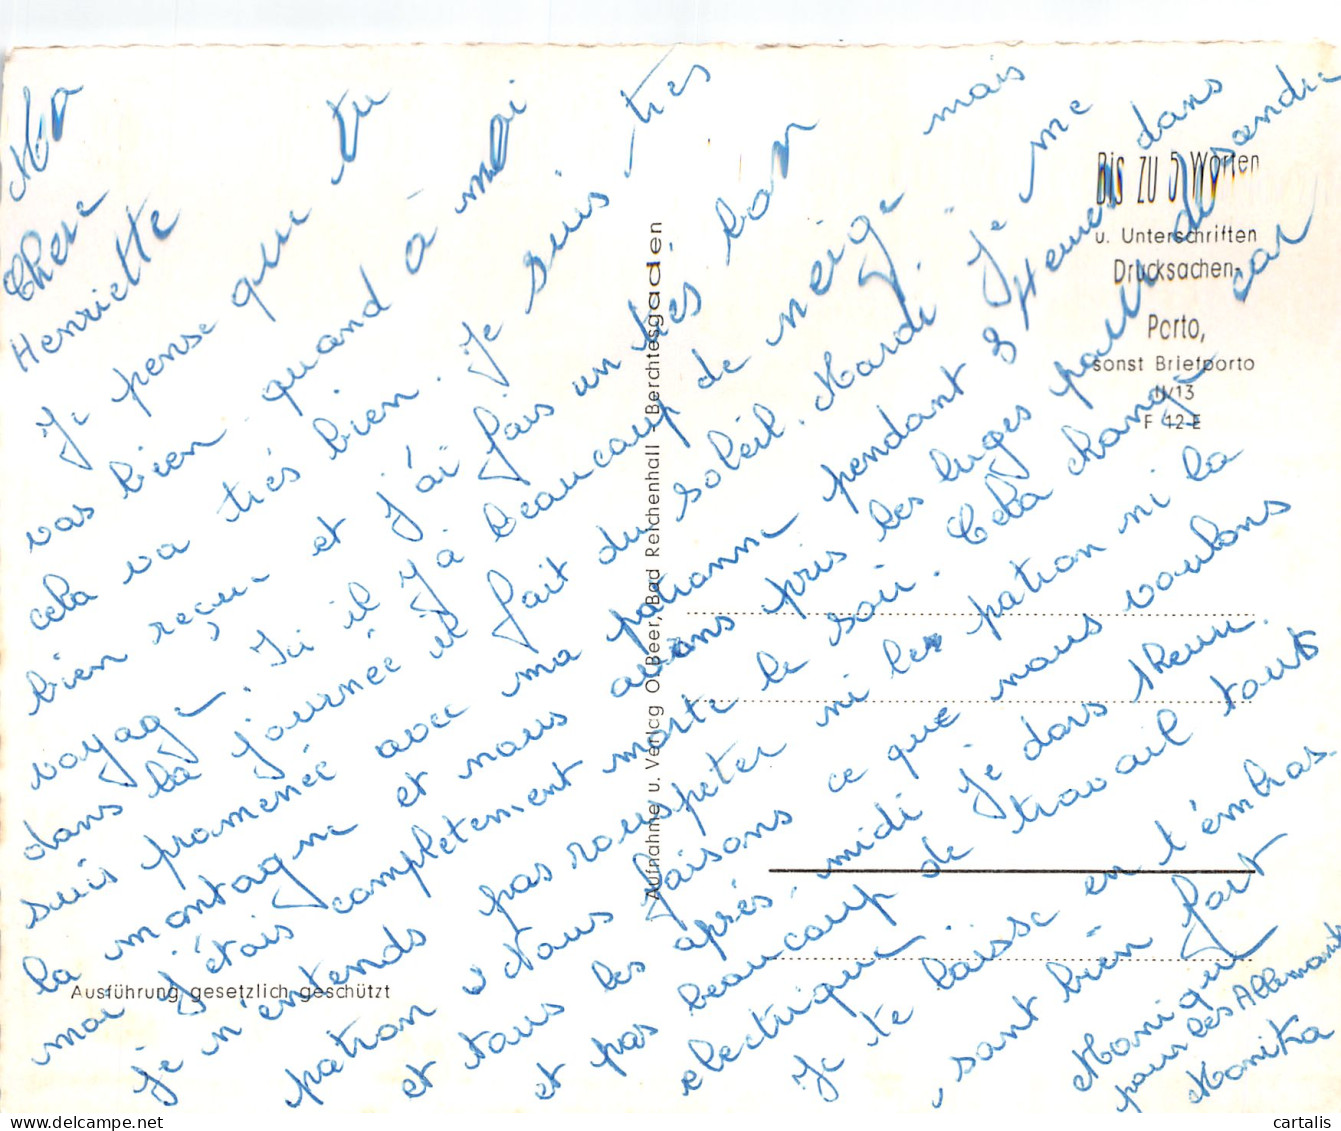 Ma
Chere
Henriette
Je pense que tu
vas bien. quand à moi
cela va tres bien. Je suis très
bien reçue et j'ai fais un très bon
voyage. Ici il y a beaucoup de neige mais
dans la journée il fait du soleil. Mardi je me
suis promenée avec ma patronne pendant 3 Heures dans
la montagne et nous avons pris les luges pour descendre
moi j'étais completement morte le soir. Cela change car
je n'entends pas rouspeter ni les patron ni la
patron. Nous faisons ce que nous voulons
et tous les aprés-midi je dors 1 heure.
et pas beaucoup de travail tout
electrique
Je te laisse en t'embras
sant bien fort
Monique
pour les Allemands
Monika
Bis zu 5 Worten
u. Unterschriften
Drucksachen-
Porto,
sonst Briefporto
II/13
F 12-E
Aufnahme u. Verlag O. Beer, Bad Reichenhall - Berchtesgaden
Ausführung gesetzlich geschützt
cartalis
delcampe.net